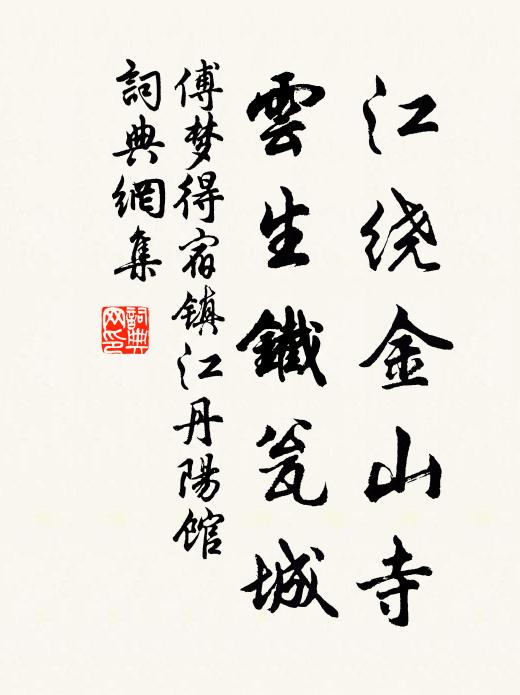 江绕金山寺
雲生鐵瓮城
傅梦得宿镇江丹陽馆
詞典網集
詞典
网印